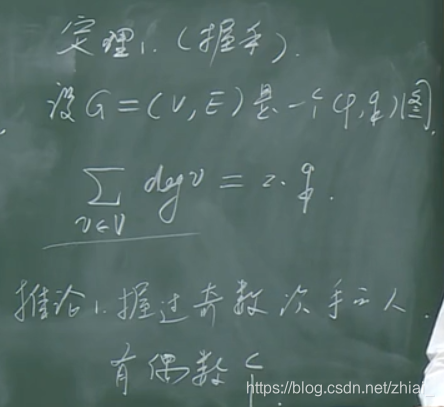 定理1.(握手).
设G=(V,E)是一个(p,q)图,
∑ deg v = 2·q.
v∈V
推论1.握过奇数次手之人.
有偶数个.
https://blog.csdn.net/zhiai